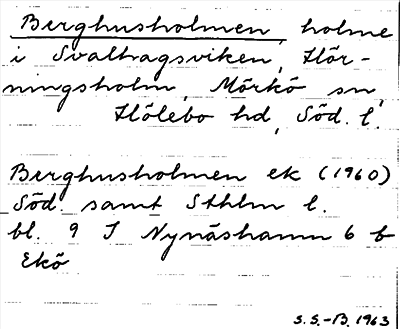 Berghusholmen, holme
i Svalhagsviken, Hör-
ningsholm, Mörkö sn,
Hölebo hd, Söd. l.
Berghusholmen ek (1960)
Söd. samt Sthlm l.
bl. 9 I Nynäshamn 6 b
Ekö
S.S.-B. 1963